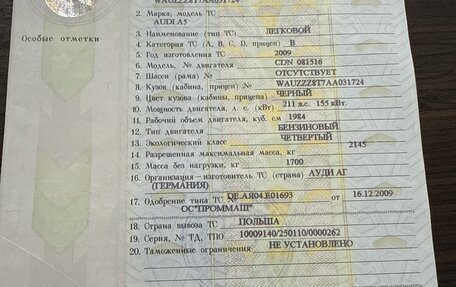 WAUZZZ8T7AA031724
2. Марка, модель ТС
AUDI A5
Особые отметки
3. Наименование (тип ТС) ЛЕГКОВОЙ
4. Категория ТС (А, В, С, D, прицеп) В
5. Год изготовления ТС 2009
6. Модель, № двигателя CDN 081516
7. Шасси (рама) № ОТСУТСТВУЕТ
8. Кузов (кабина, прицеп) № WAUZZZ8T7AA031724
9. Цвет кузова (кабины, прицепа) ЧЕРНЫЙ
10. Мощность двигателя, л. с. (кВт) 211 л.с. 155 кВт.
11. Рабочий объем двигателя, куб. см 1984
12. Тип двигателя БЕНЗИНОВЫЙ
13. Экологический класс ЧЕТВЕРТЫЙ
14. Разрешенная максимальная масса, кг 2145
15. Масса без нагрузки, кг 1700
16. Организация – изготовитель ТС (страна) АУДИ АГ
(ГЕРМАНИЯ)
17. Одобрение типа ТС № DE.АЯ04.Е01693 от 16.12.2009
ОС"ПРОММАШ"
18. Страна вывоза ТС ПОЛЬША
19. Серия, № ТД, ТПО 10009140/250110/0000262
20. Таможенные ограничения НЕ УСТАНОВЛЕНО